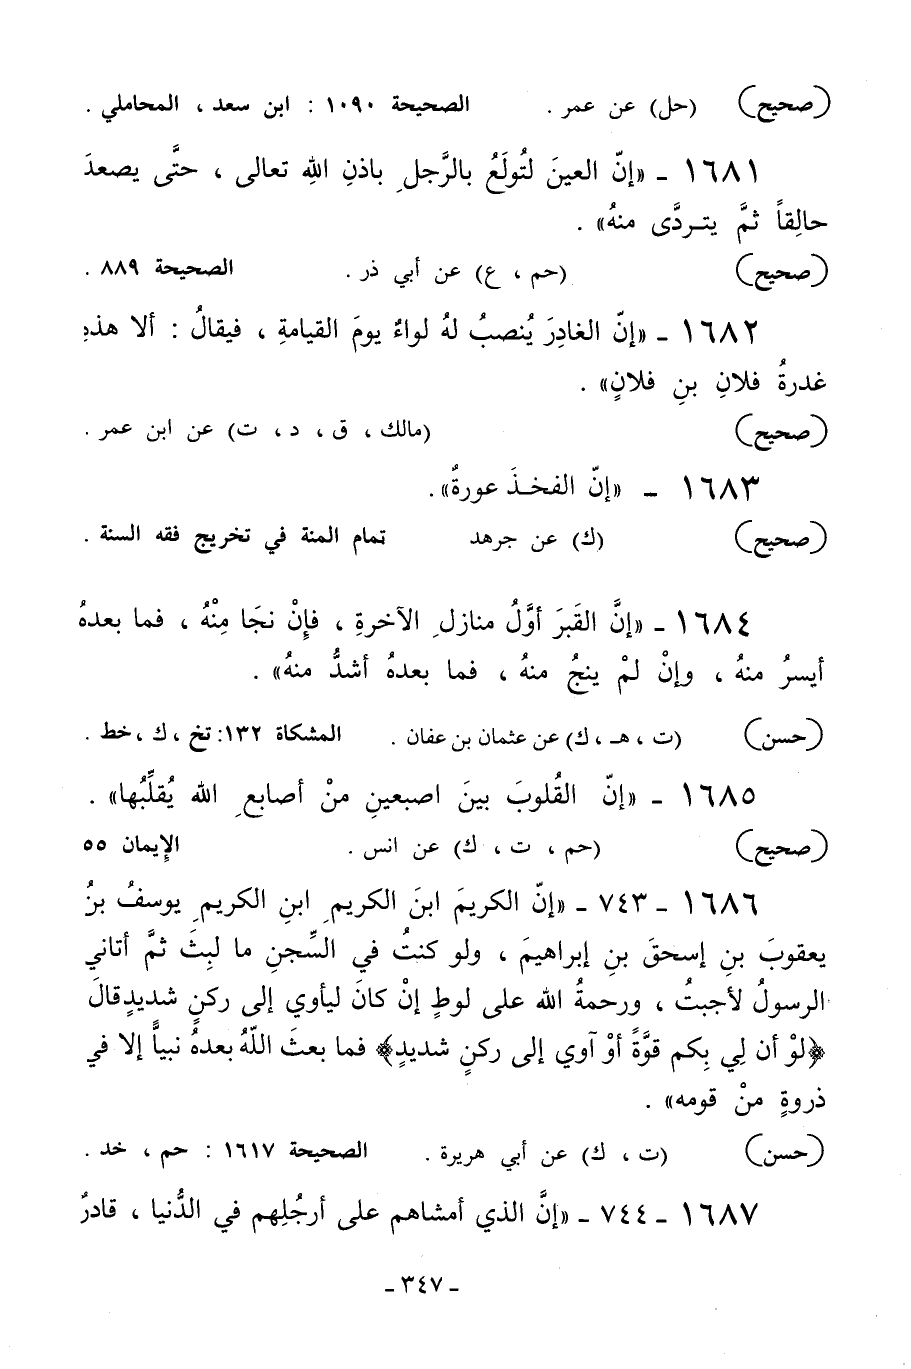 (صحيح) (حل) عن عمر . الصحيحة ١٠٩٠ : ابن سعد ، المحاملي .
١٦٨١ - «إنّ العينَ لتُولَعُ بالرَّجلِ باذنِ اللهِ تعالى ، حتَّى يصعدَ
حالِقاً ثمَّ يتـردَّى منهُ» .
(صحيح) (حم ، ع) عن أبي ذر . الصحيحة ٨٨٩ .
١٦٨٢ - «إنّ الغادِرَ يُنصبُ لهُ لواءٌ يومَ القيامةِ ، فيقالُ : ألا هذهِ
غدرةُ فلانِ بنِ فلانٍ» .
(صحيح) (مالك ، ق ، د ، ت) عن ابن عمر .
١٦٨٣ - «إنّ الفخـذَ عورةٌ» .
(صحيح) (ك) عن جرهد تمام المنة في تخريج فقه السنة .
١٦٨٤ - «إنَّ القَبرَ أوَّلُ منازلِ الآخرةِ ، فإنْ نجَا مِنْهُ ، فما بعدهُ
أيسرُ منهُ ، وإنْ لمْ ينجُ منهُ ، فما بعدهُ أشدُّ منهُ» .
(حسن) (ت ، هـ ، ك) عن عثمان بن عفان . المشكاة ١٣٢: تخ ، ك ، خط .
١٦٨٥ - «إنّ القُلوبَ بينَ اصبعينِ منْ أصابعِ الله يُقلِّبُها» .
(صحيح) (حم ، ت ، ك) عن انس . الإيمان ٥٥
١٦٨٦ - ٧٤٣ - «إنّ الكريمَ ابنَ الكريمِ ابنِ الكريمِ يوسفُ بنُ
يعقوبَ بنِ إسحقَ بنِ إبراهيمَ ، ولو كنتُ في السِّجنِ ما لبِثَ ثمَّ أتاني
الرسولُ لأجبتُ ، ورحمةُ الله على لوطٍ إنْ كانَ ليأوي إلى ركنٍ شديدٍ قالَ
﴿لوْ أن لِي بِكم قوَّةً أوْ آوي إلى ركنٍ شديدٍ﴾ فما بعثَ اللّهُ بعدهُ نبياًّ إلا في
ذروةٍ منْ قومه» .
(حسن) (ت ، ك) عن أبي هريرة . الصحيحة ١٦١٧ : حم ، خد .
١٦٨٧ - ٧٤٤ - «إنَّ الذي أمشاهم على أرجُلِهم في الدُّنيا ، قادرٌ
- ٣٤٧ -